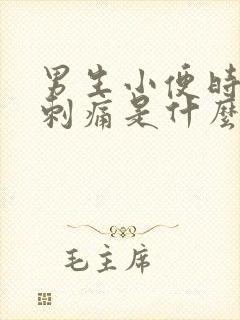 男生小便時
刺痛是什麼
毛主席